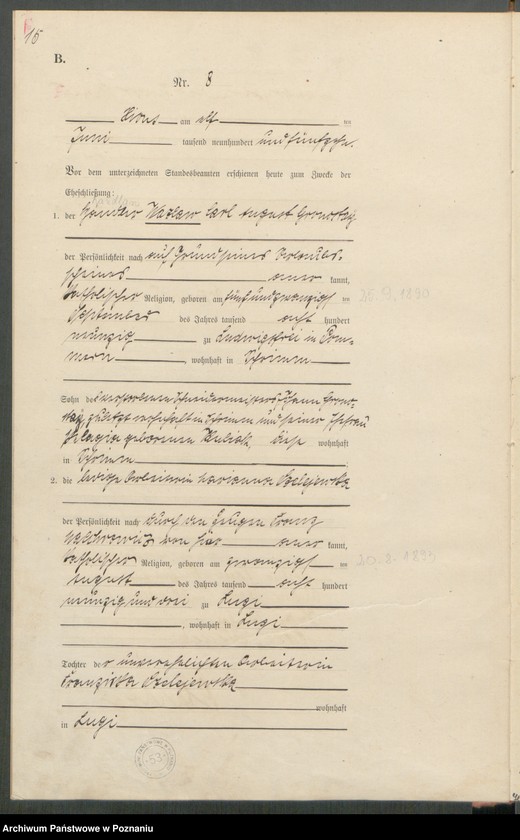 15
B.
Nr. 8
am elf ten
Juni tausend neunhundert und fünfzehn.
Vor dem unterzeichneten Standesbeamten erschienen heute zum Zwecke der
Eheschließung:
1. der Händler Carl August
der Persönlichkeit nach auf Grund seines Urlaubs-
scheines aner kannt,
katholischer Religion, geboren am fünfundzwanzigs ten
September des Jahres tausend acht hundert
neunzig zu in Pom-
mern, wohnhaft in Schrimm
Sohn des verstorbenen Schneidermeisters
zuletzt wohnhaft in Schrimm und seiner Ehefrau
Pelagia geborenen wohnhaft
in Schrimm
2. die ledige Arbeiterin Marianna Szelejewska
der Persönlichkeit nach durch den Zeugen Franz
von hier aner kannt,
katholischer Religion, geboren am zwanzigs ten
August des Jahres tausend acht hundert
neunzig und drei zu Lugi
, wohnhaft in Lugi
Tochter der unverehelichten Arbeiterin
Franziska Szelejewska
wohnhaft
in Lugi
25.9.1890
20.8.1893
53
Archiwum Państwowe w Poznaniu